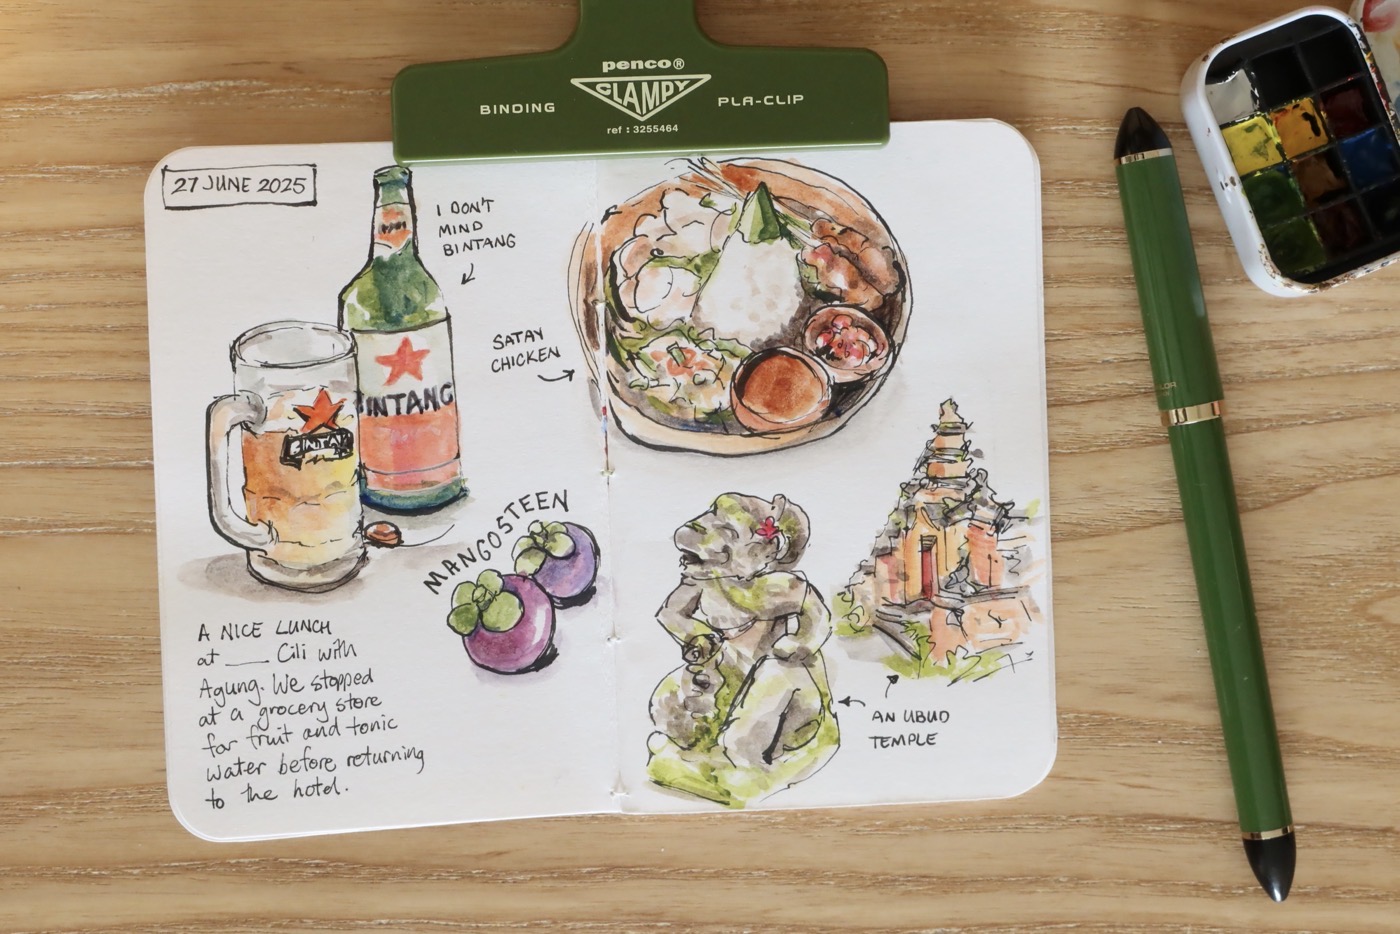 penco®
CLAMPY
BINDING
PLA-CLIP
ref : 3255464
27 JUNE 2025
I DON'T
MIND
BINTANG
BINTANG
INTANG
SATAY
CHICKEN
MANGOSTEEN
A NICE LUNCH
at ___ Cili with
Agung. We stopped
at a grocery store
for fruit and tonic
water before returning
to the hotel.
AN UBUD
TEMPLE